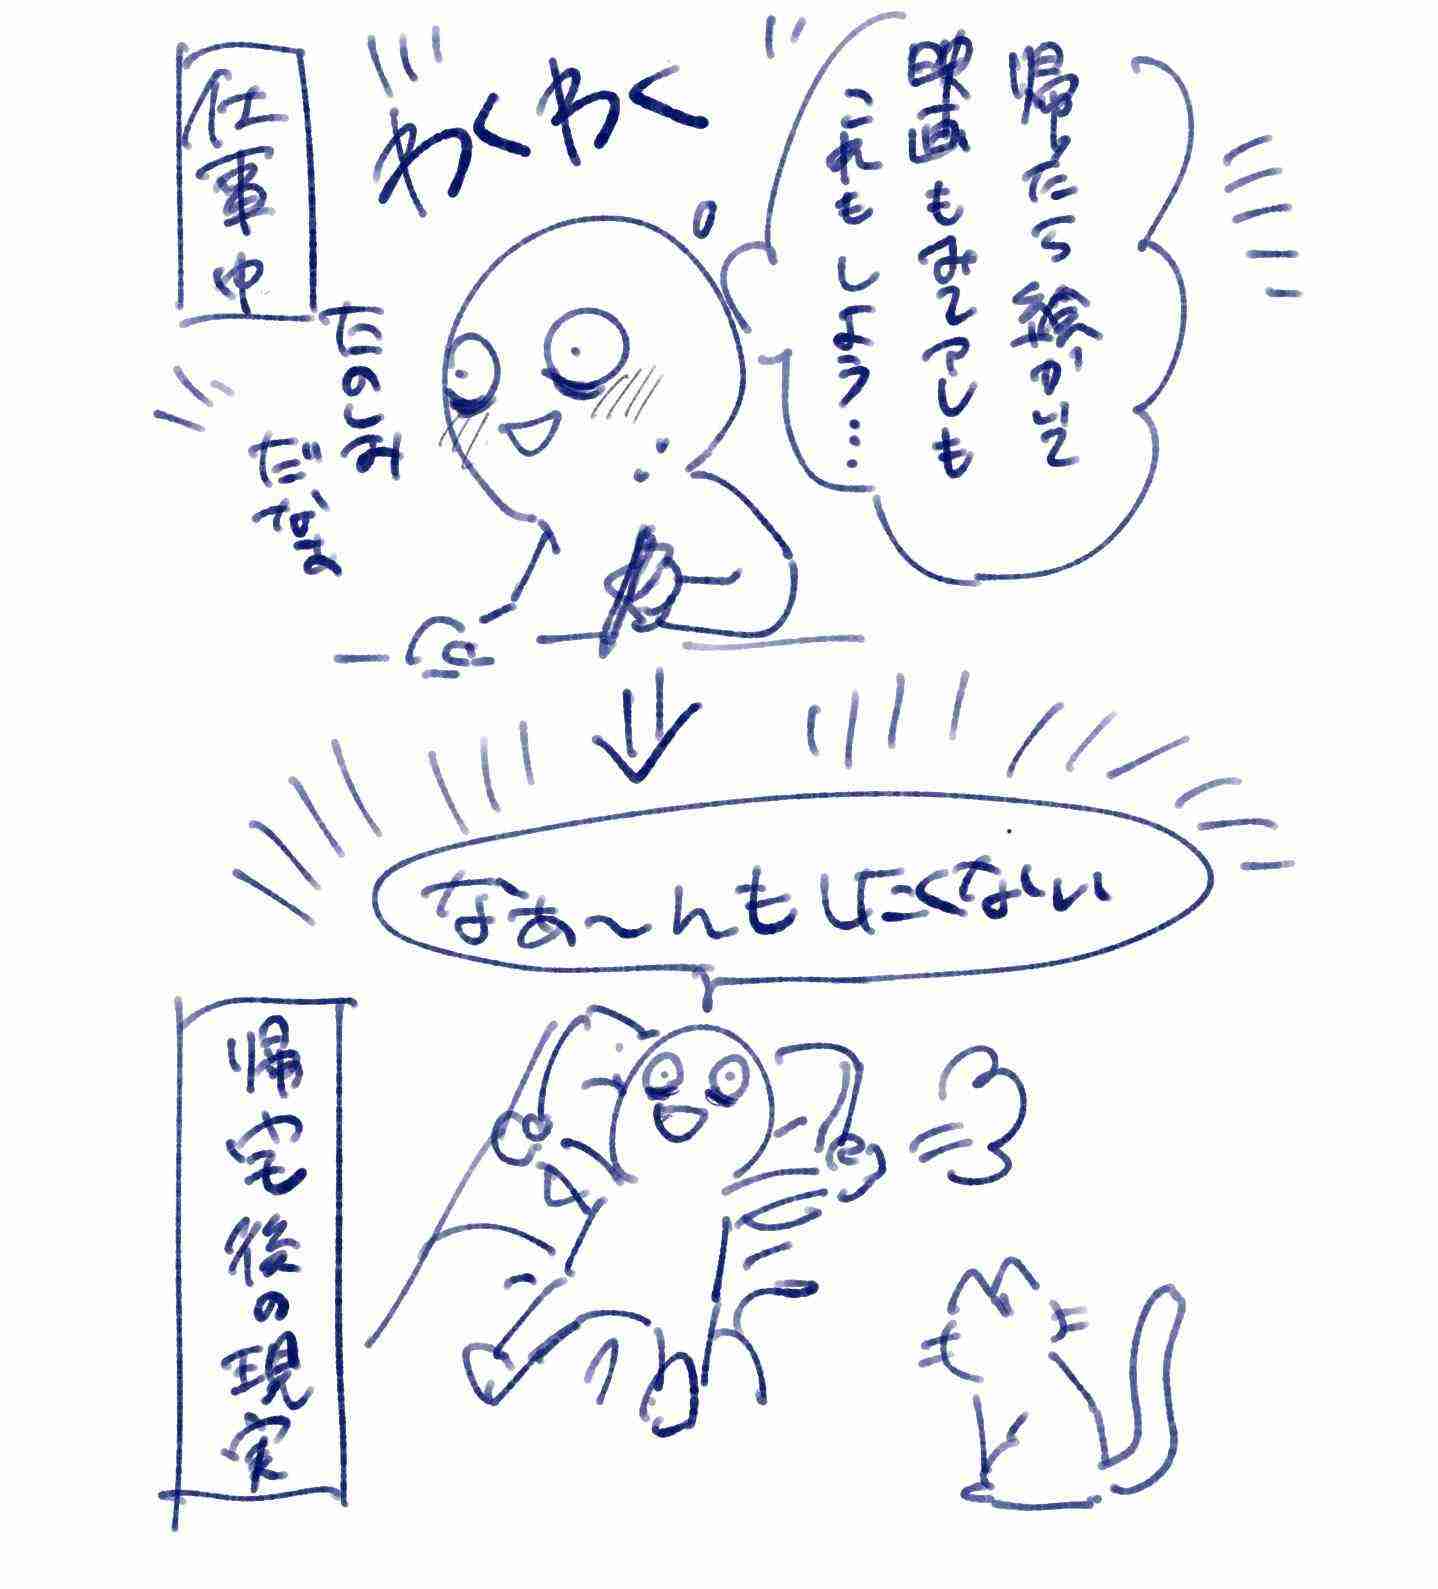 仕事中
わくわく
帰ったら絵かいて
映画もみてアレも
これもしよう…
たのしみ
だなぁ
なぁ〜んもしたくない
帰宅後の現実